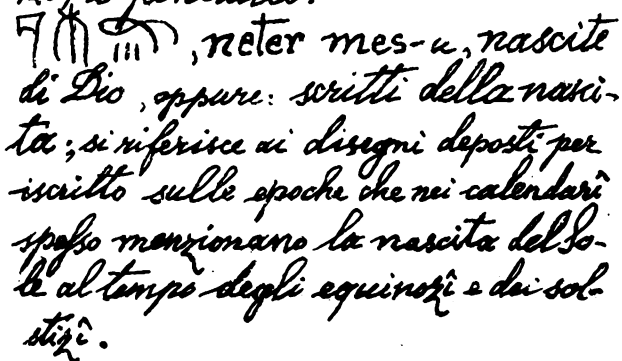 , neter mes-u, nascite
di Dio, oppure: scritti della nasci-
ta; si riferisce ai disegni deposti per
iscritto sulle epoche che nei calendarî
spesso menzionano la nascita del So-
le al tempo degli equinozî e dei sol-
stizî.